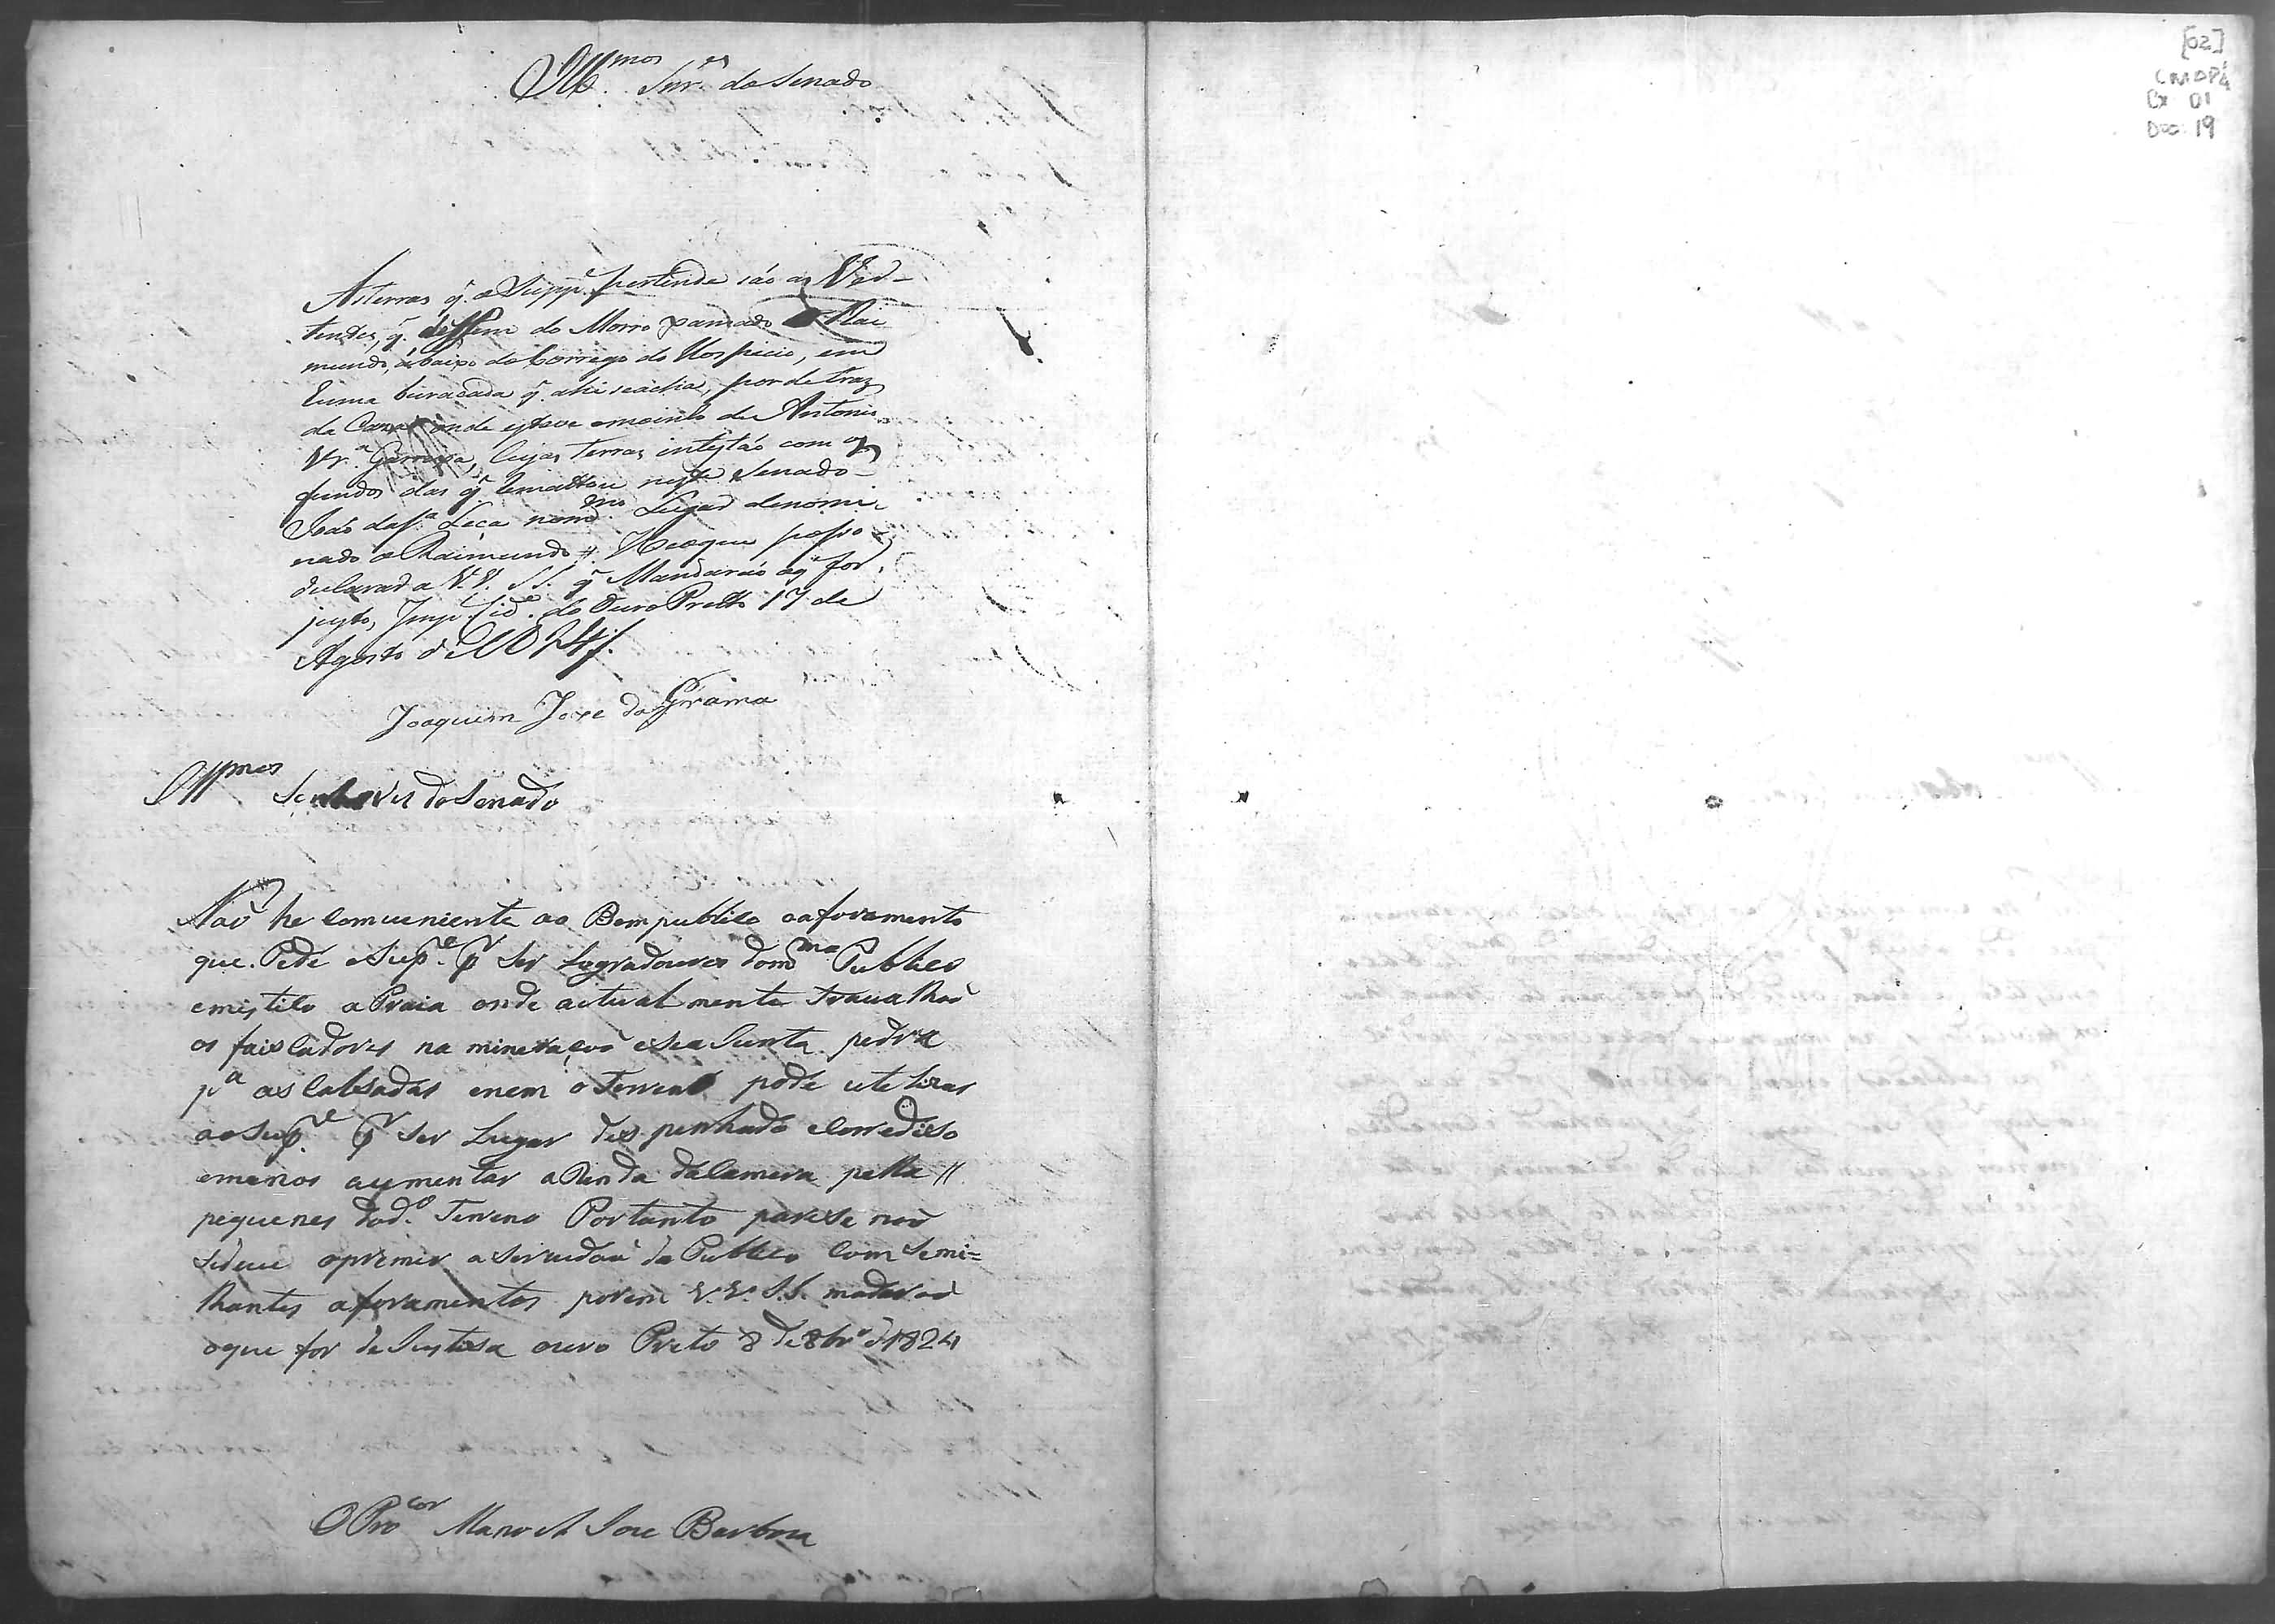 Ill.mos Snr.es do Senado
As terras q. o Supp.e pertende são as Ver-
tentes, q. dessem do Morro xamado o Rai
mundo, abaixo do Corrego do Hospicio, em
huma buracada q̃ ahi seacha, por de traz
da Caza onde esteve omoinho de Antonio
Vr.a cujas Terras intestão com os
fundos das q̃ Rematou neste Senado
João da S.a Leça no mmo Lugar denomi-
nado o Raimundo #. He oque posso
declarar a V.V. S.S. q̃ Mandarão oq̃ for
justo, Imp. Cid.e do Ouro Pretto 17 de
Agosto de 1824
Joaquim Jose da Grama
Ill.mos Senhores do Senado
Naõ he comueniente ao Bem publico oaforamento
que Pede o Sup.e pr ser Logradouros do mmo Publico
emistilo a Praia onde actualmente traualhaõ
os faiscadores na mineraçaõ esea Junta pedra
p.a as Calsadas enem o Terreno pode utelizar
ao Sup.e pr ser Lugar despenhado
emenos aumentar a Renda da Camera pella //
pequenes do d.o Terreno Portanto parese naõ
sedeue opremir a Seruidaõ do Publico Com Semi=
lhantes aforamentos porem V.V. S.S. mādaraõ
oque for de Justisa ouro Preto 8 de 8br.o d 1824
O Pro.cor Manoel Jose Barboza
[02]
CMOP
Cx 01
Doc 19